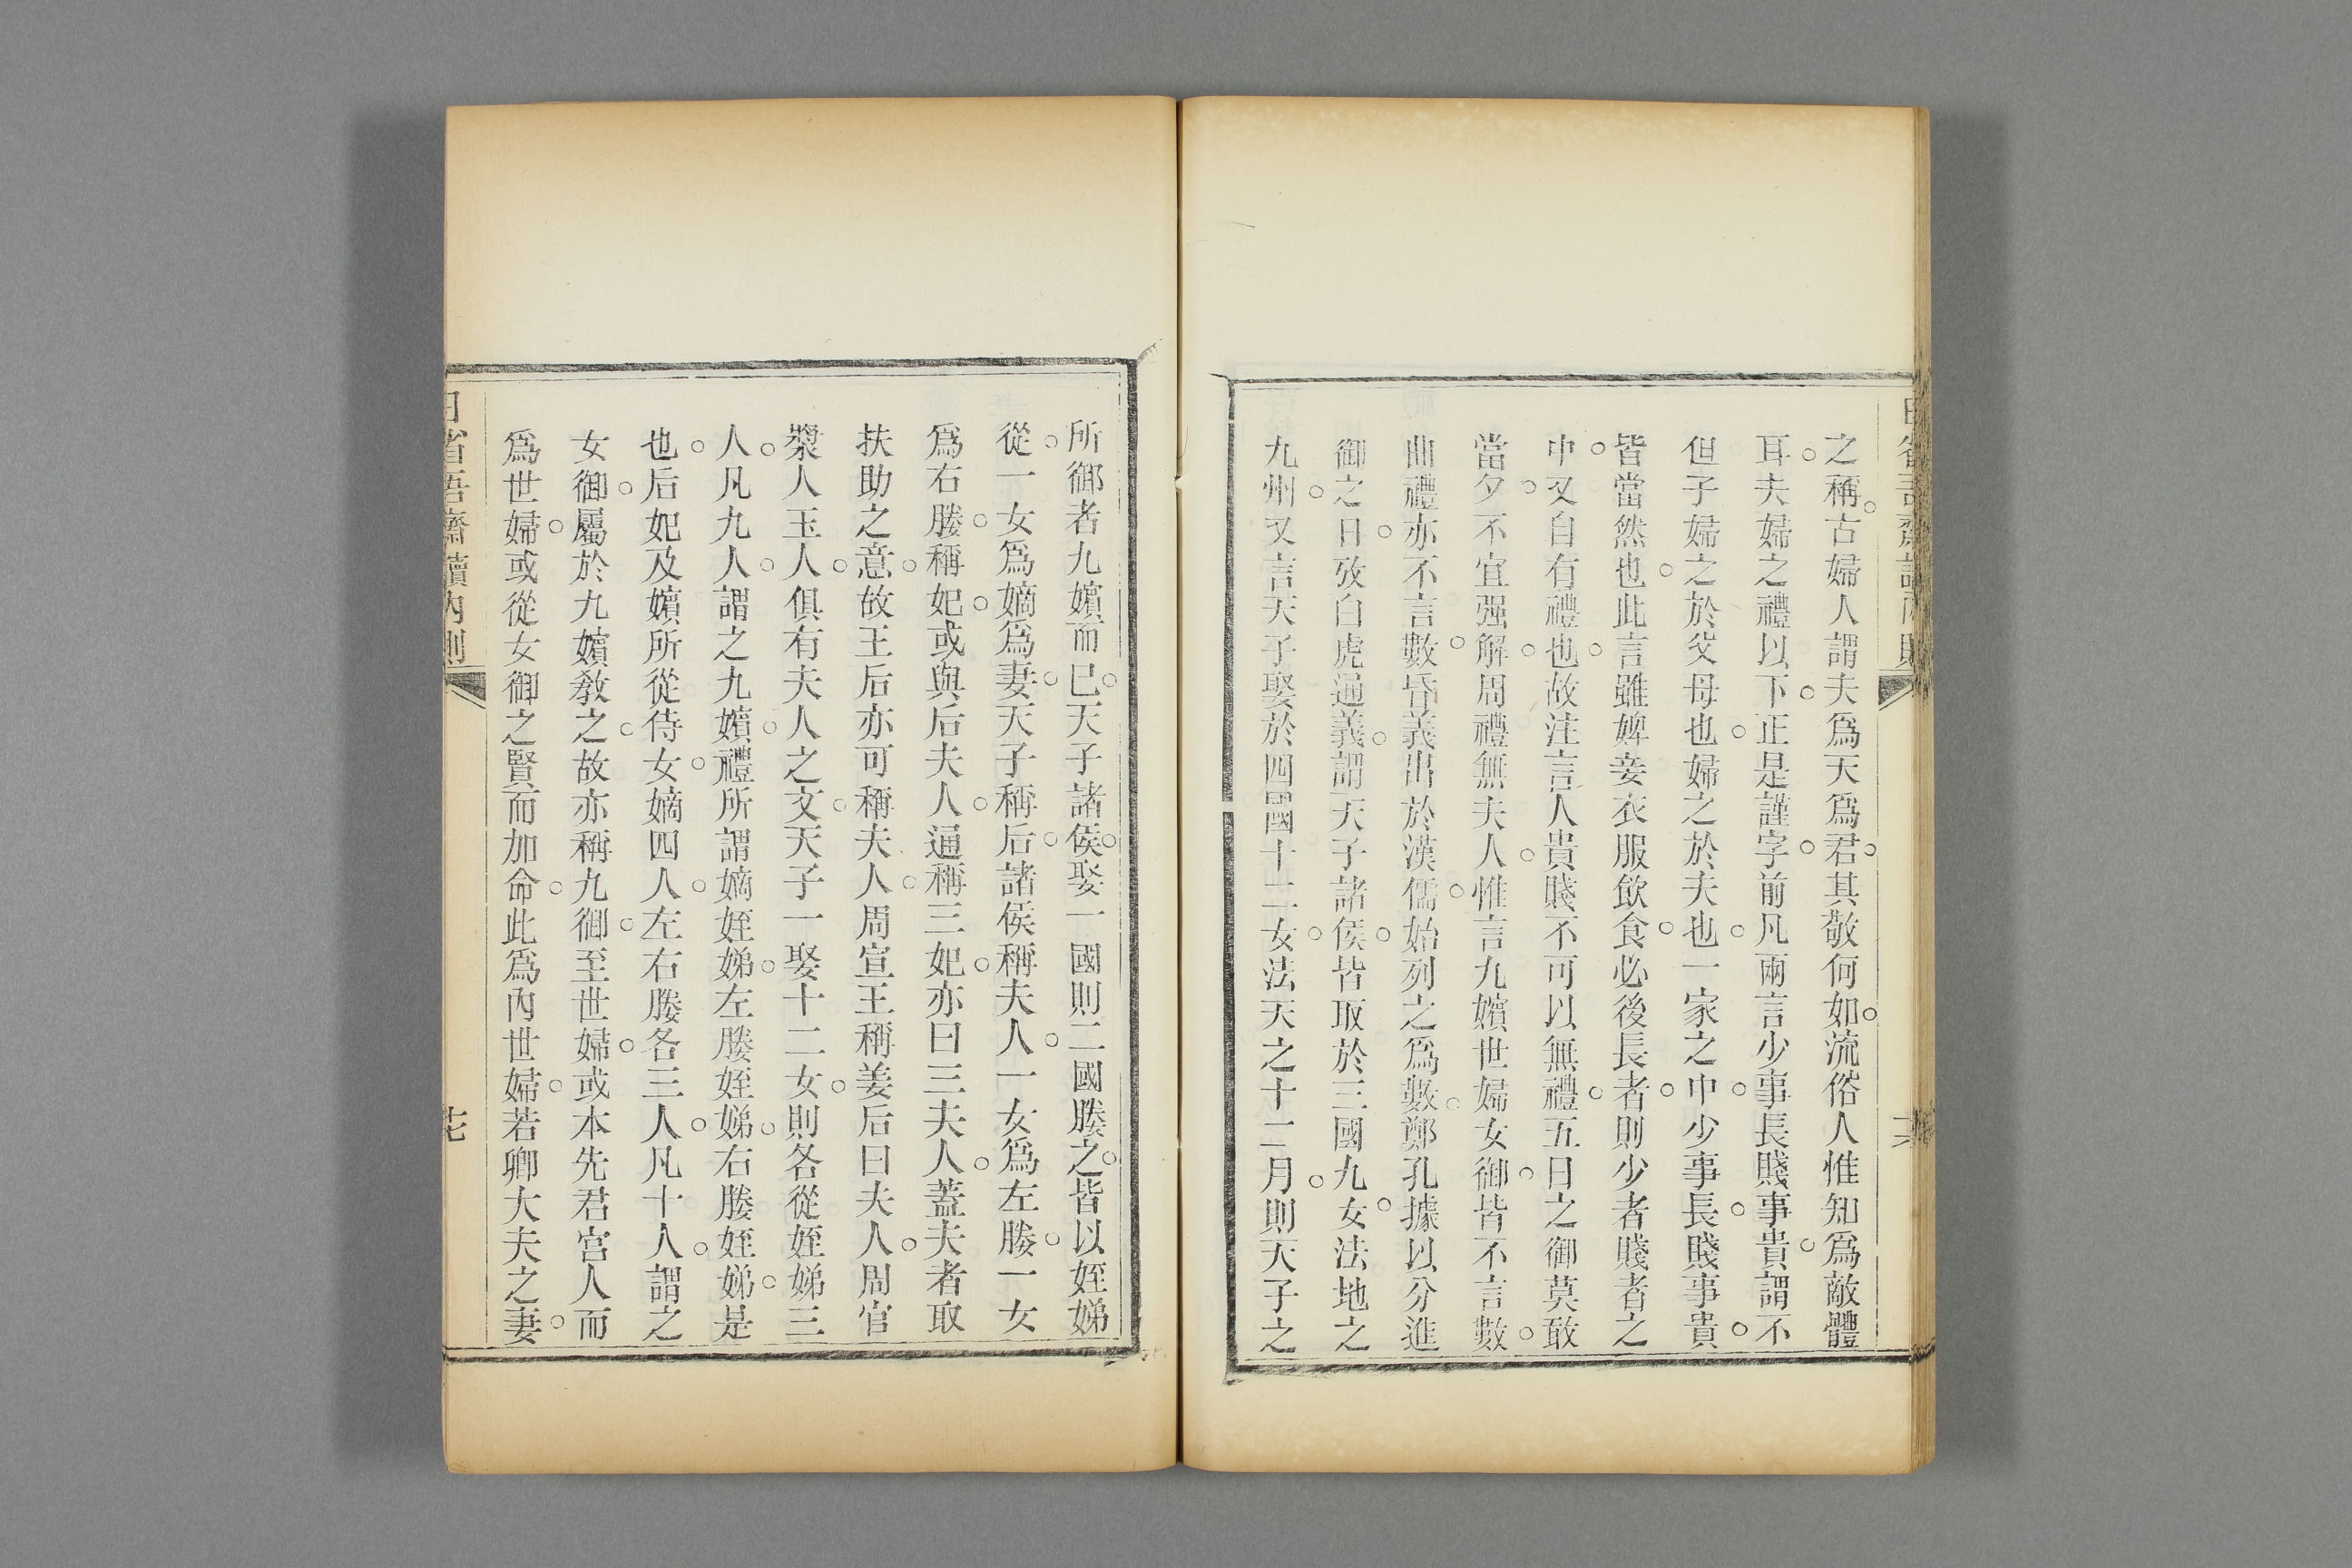 之稱。古婦人謂夫爲天爲君。其敬何如。流俗人惟知爲敵體
耳。夫婦之禮以下。正是謹字。前凡兩言少事長賤事貴。謂不
但子婦之於父母也。婦之於夫也。一家之中。少事長。賤事貴。
皆當然也。此言雖婢妾衣服飲食。必後長者。則少者賤者之
中。又自有禮也。故注言人貴賤不可以無禮。五日之御莫敢
當夕。不宜强解。周禮無夫人。惟言九嬪世婦女御。皆不言數。
曲禮亦不言數。昏義出於漢儒。始列之爲數。鄭孔據以分進
御之日。攷白虎通義。謂天子諸侯。皆取於三國九女。法地之
九州。又言天子娶於四國十二女。法天之十二月。則天子之
所御者九嬪而已。天子諸侯。娶一國則二國媵之。皆以姪娣
從。一女爲嫡爲妻。天子稱后。諸侯稱夫人。一女爲左媵。一女
爲右媵。稱妃。或與后夫人。通稱三妃。亦曰三夫人。蓋夫者取
扶助之意。故王后亦可稱夫人。周宣王稱姜后曰夫人。周官
漿人玉人。俱有夫人之文。天子一娶十二女。則各從姪娣三
人。凡九人。謂之九嬪。禮所謂嫡姪娣。左媵姪娣。右媵姪娣。是
也。后妃及嬪所從侍女。嫡四人。左右媵各三人。凡十人。謂之
女御。屬於九嬪敎之。故亦稱九御。至世婦。或本先君宮人而
爲世婦。或從女御之賢而加命。此爲內世婦。若卿大夫之妻。
日省吾齋讀內則